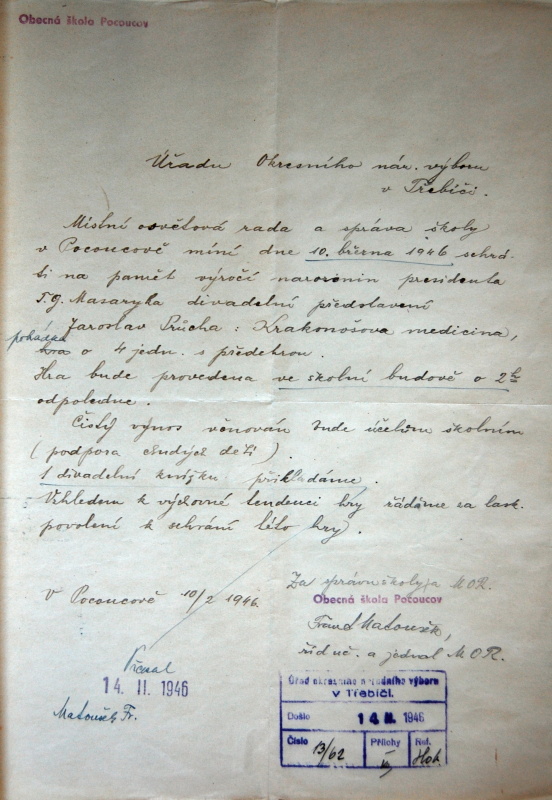 Obecná škola Pocoucov
Úřadu Okresního nár. výboru
v Třebíči.
Místní osvětová rada a správa školy
v Pocoucově míní dne 10. března 1946 sehrá-
ti na paměť výročí narozenin presidenta
T. G. Masaryka divadelní představení
Jaroslav Průcha: Krakonošova medicina,
pohádka
hra o 4 jedn. s předehrou.
Hra bude provedena ve školní budově o 2h
odpoledne.
Čistý výnos věnován bude účelům školním
(podpora chudých dětí).
1 divadelní knížku přikládáme.
Vzhledem k výchovné tendenci hry žádáme za lask.
povolení k sehrání této hry.
V Pocoucově 10/2 1946.
Za správu školy a M.O.R.
Obecná škola Pocoucov
Matoušek,
říd. uč. a jednat. M.O.R.
14. II. 1946
Matoušek Fr.
Úřad okresního národního výboru
v Třebíči.
Došlo 14. II. 1946
Číslo 13/62 Přílohy Ref.